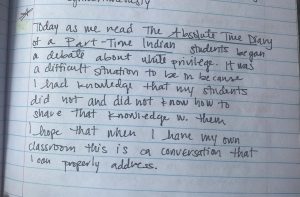 Today as we read The Absolute True Diary
of a Part-Time Indian students began
a debate about white privilege. It was
a difficult situation to be in because
I had knowledge that my students
did not and did not know how to
share that knowledge w. them
I hope that when I have my own
classroom this is a conversation that
I can properly address.